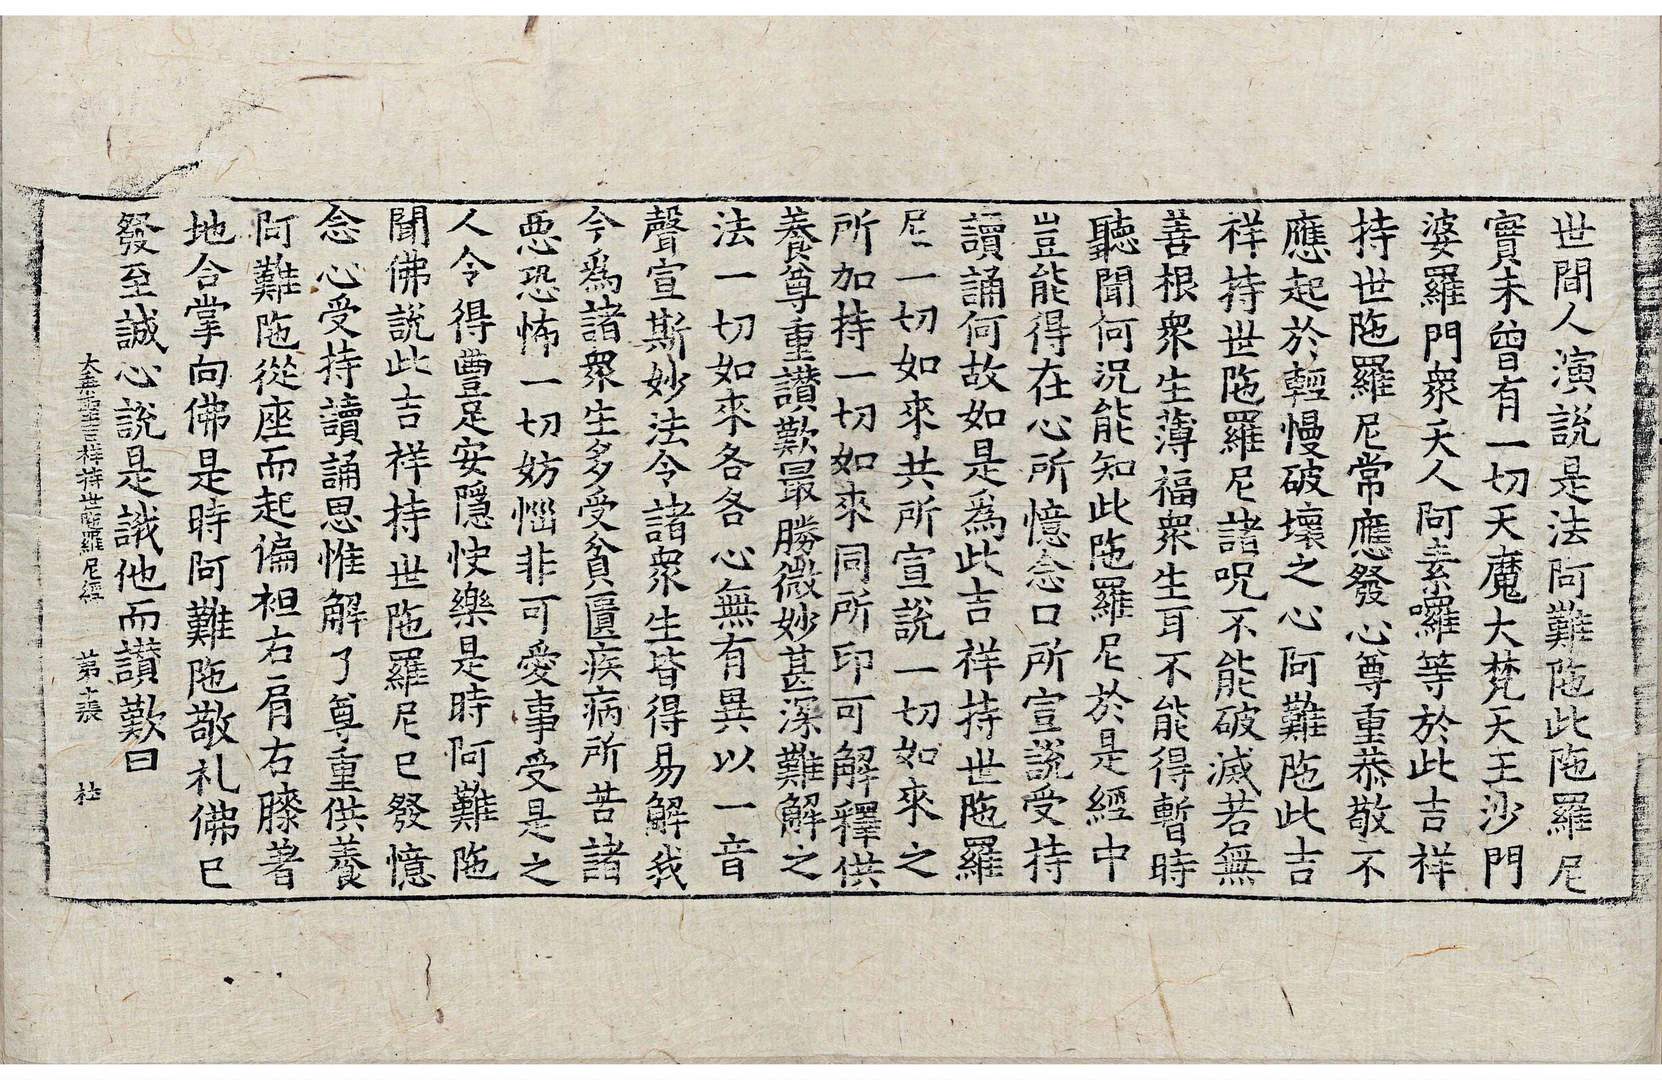 世間人演說是法阿難陁此陁羅尼
實未曾有一切天魔大梵天王沙門
婆羅門衆天人阿素囉羅等於此吉祥
持世陁羅尼常應發心尊重恭敬不
應起於輕慢破壞之心阿難陁此吉
祥持世陁羅尼諸呪不能破滅若無
善根衆生薄福衆生耳不能得暫時
聽聞何況能知此陁羅尼於是經中
豈能得在心所憶念口所宣說受持
讀誦何故如是爲此吉祥持世陁羅
尼一切如來共所宣說一切如來之
所加持一切如來同所印可解釋供
養尊重讚歎最勝微妙甚深難解之
法一切如來各各心無有異以一音
聲宣斯妙法令諸衆生皆得易解我
今爲諸衆生多受貧匱疾病所苦諸
惡恐怖一切妨惱非可愛事受是之
人令得豐足安隱快樂是時阿難陁
聞佛說此吉祥持世陁羅尼已發憶
念心受持讀誦思惟解了尊重供養
阿難陁從座而起徧袒右肩右膝著
地合掌向佛是時阿難陁敬礼佛已
發至誠心說是誐他而讃歎曰
大乘聖吉祥持世陁羅尼經 第十張 杜